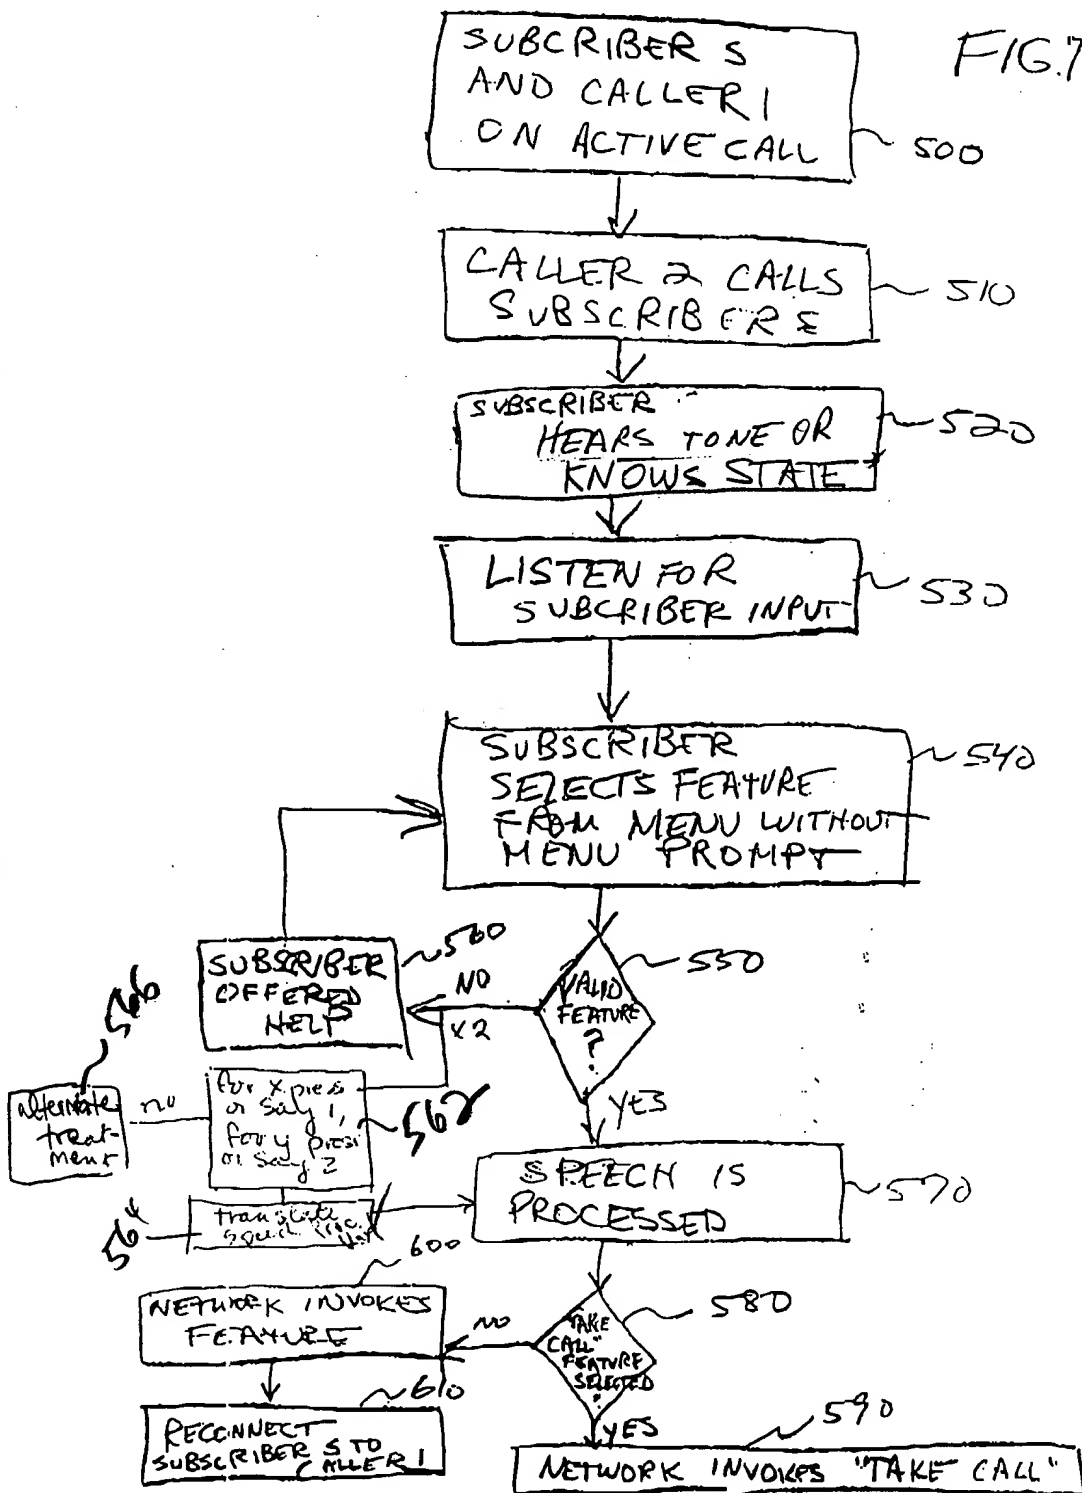 FIG.7
SUBCRIBER S
AND CALLER 1
ON ACTIVE CALL
500
CALLER 2 CALLS
SUBSCRIBER S
510
SUBSCRIBER
HEARS TONE OR
KNOWS STATE
520
LISTEN FOR
SUBCRIBER INPUT
530
SUBSCRIBER
SELECTS FEATURE
FROM MENU WITHOUT
MENU PROMPT
540
SUBSCRIBER
OFFERED
HELP
560
NO
x2
VALID
FEATURE
?
550
566
alternate
treat-
ment
no
for x press
or say 1,
for y press
or say 2
562
YES
SPEECH IS
PROCESSED
570
translate
564
600
NETWORK INVOKES
FEATURE
NO
"TAKE
CALL"
FEATURE
SELECTED
?
580
610
RECONNECT
SUBSCRIBER S TO
CALLER 1
YES
590
NETWORK INVOKES "TAKE CALL"